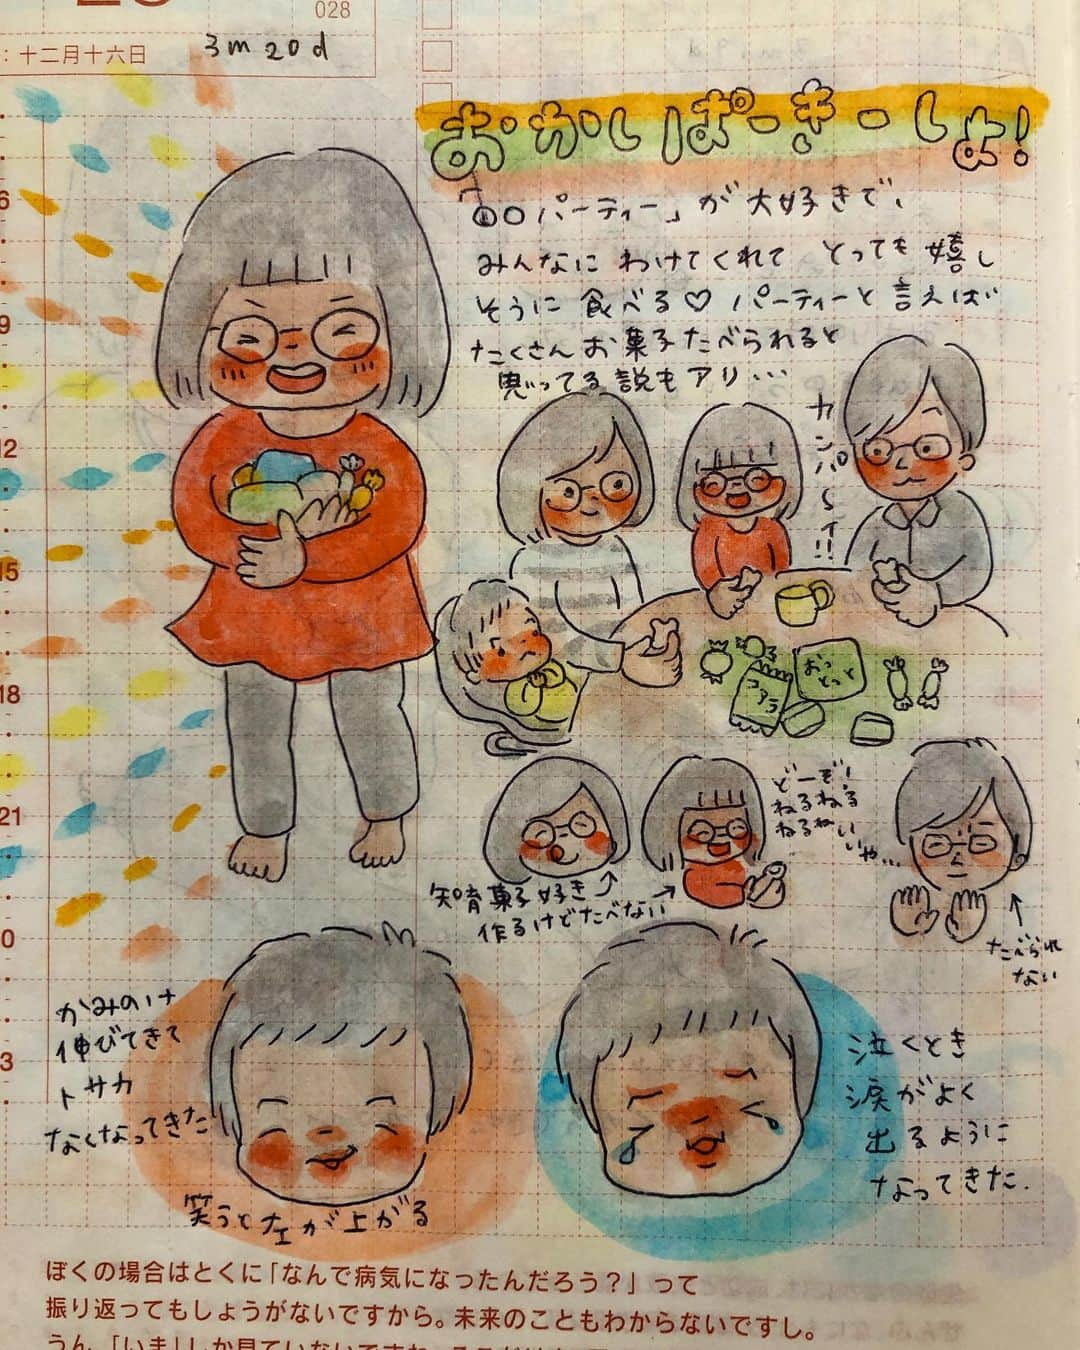 028
：十二月十六日
3m20d
おかしぱーきーしよ!
「○○パーティー」が大好きで、
みんなに わけてくれて とっても 嬉し
そうに 食べる♡ パーティーと 言えば
たくさん お菓子 たべられると
思ってる 説も アリ…
カンパ〜イ!!
コアラ
おっとっと
どーぞ!
ねるねる
ねるねい
いや…
知育菓子好き
作るけどたべない
たべられ
ない
かみのけ
伸びてきて
トサカ
なくなってきた
笑うと左が上がる
泣くとき
涙がよく
出るように
なってきた.
6
9
12
15
18
21
0
3
ぼくの場合はとくに「なんで病気になったんだろう?」って
振り返ってもしょうがないですから。未来のこともわからないですし。
うん、「いま」しか見ていないですね。